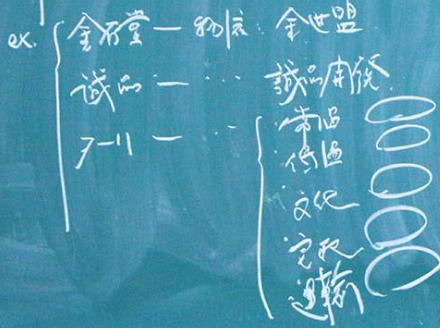 ex. 金石堂 — 物流: 金世盟
誠品 — … 誠品開發
7-11 — …
常溫
低溫
文化
宅配
運輸